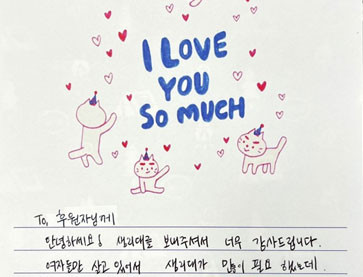 I LOVE
YOU
SO MUCH
To, 후원자님께
안녕하세요! 생리대를 보내주셔서 너무 감사드립니다.
여자들만 살고 있어서 생리대가 많이 필요했는데